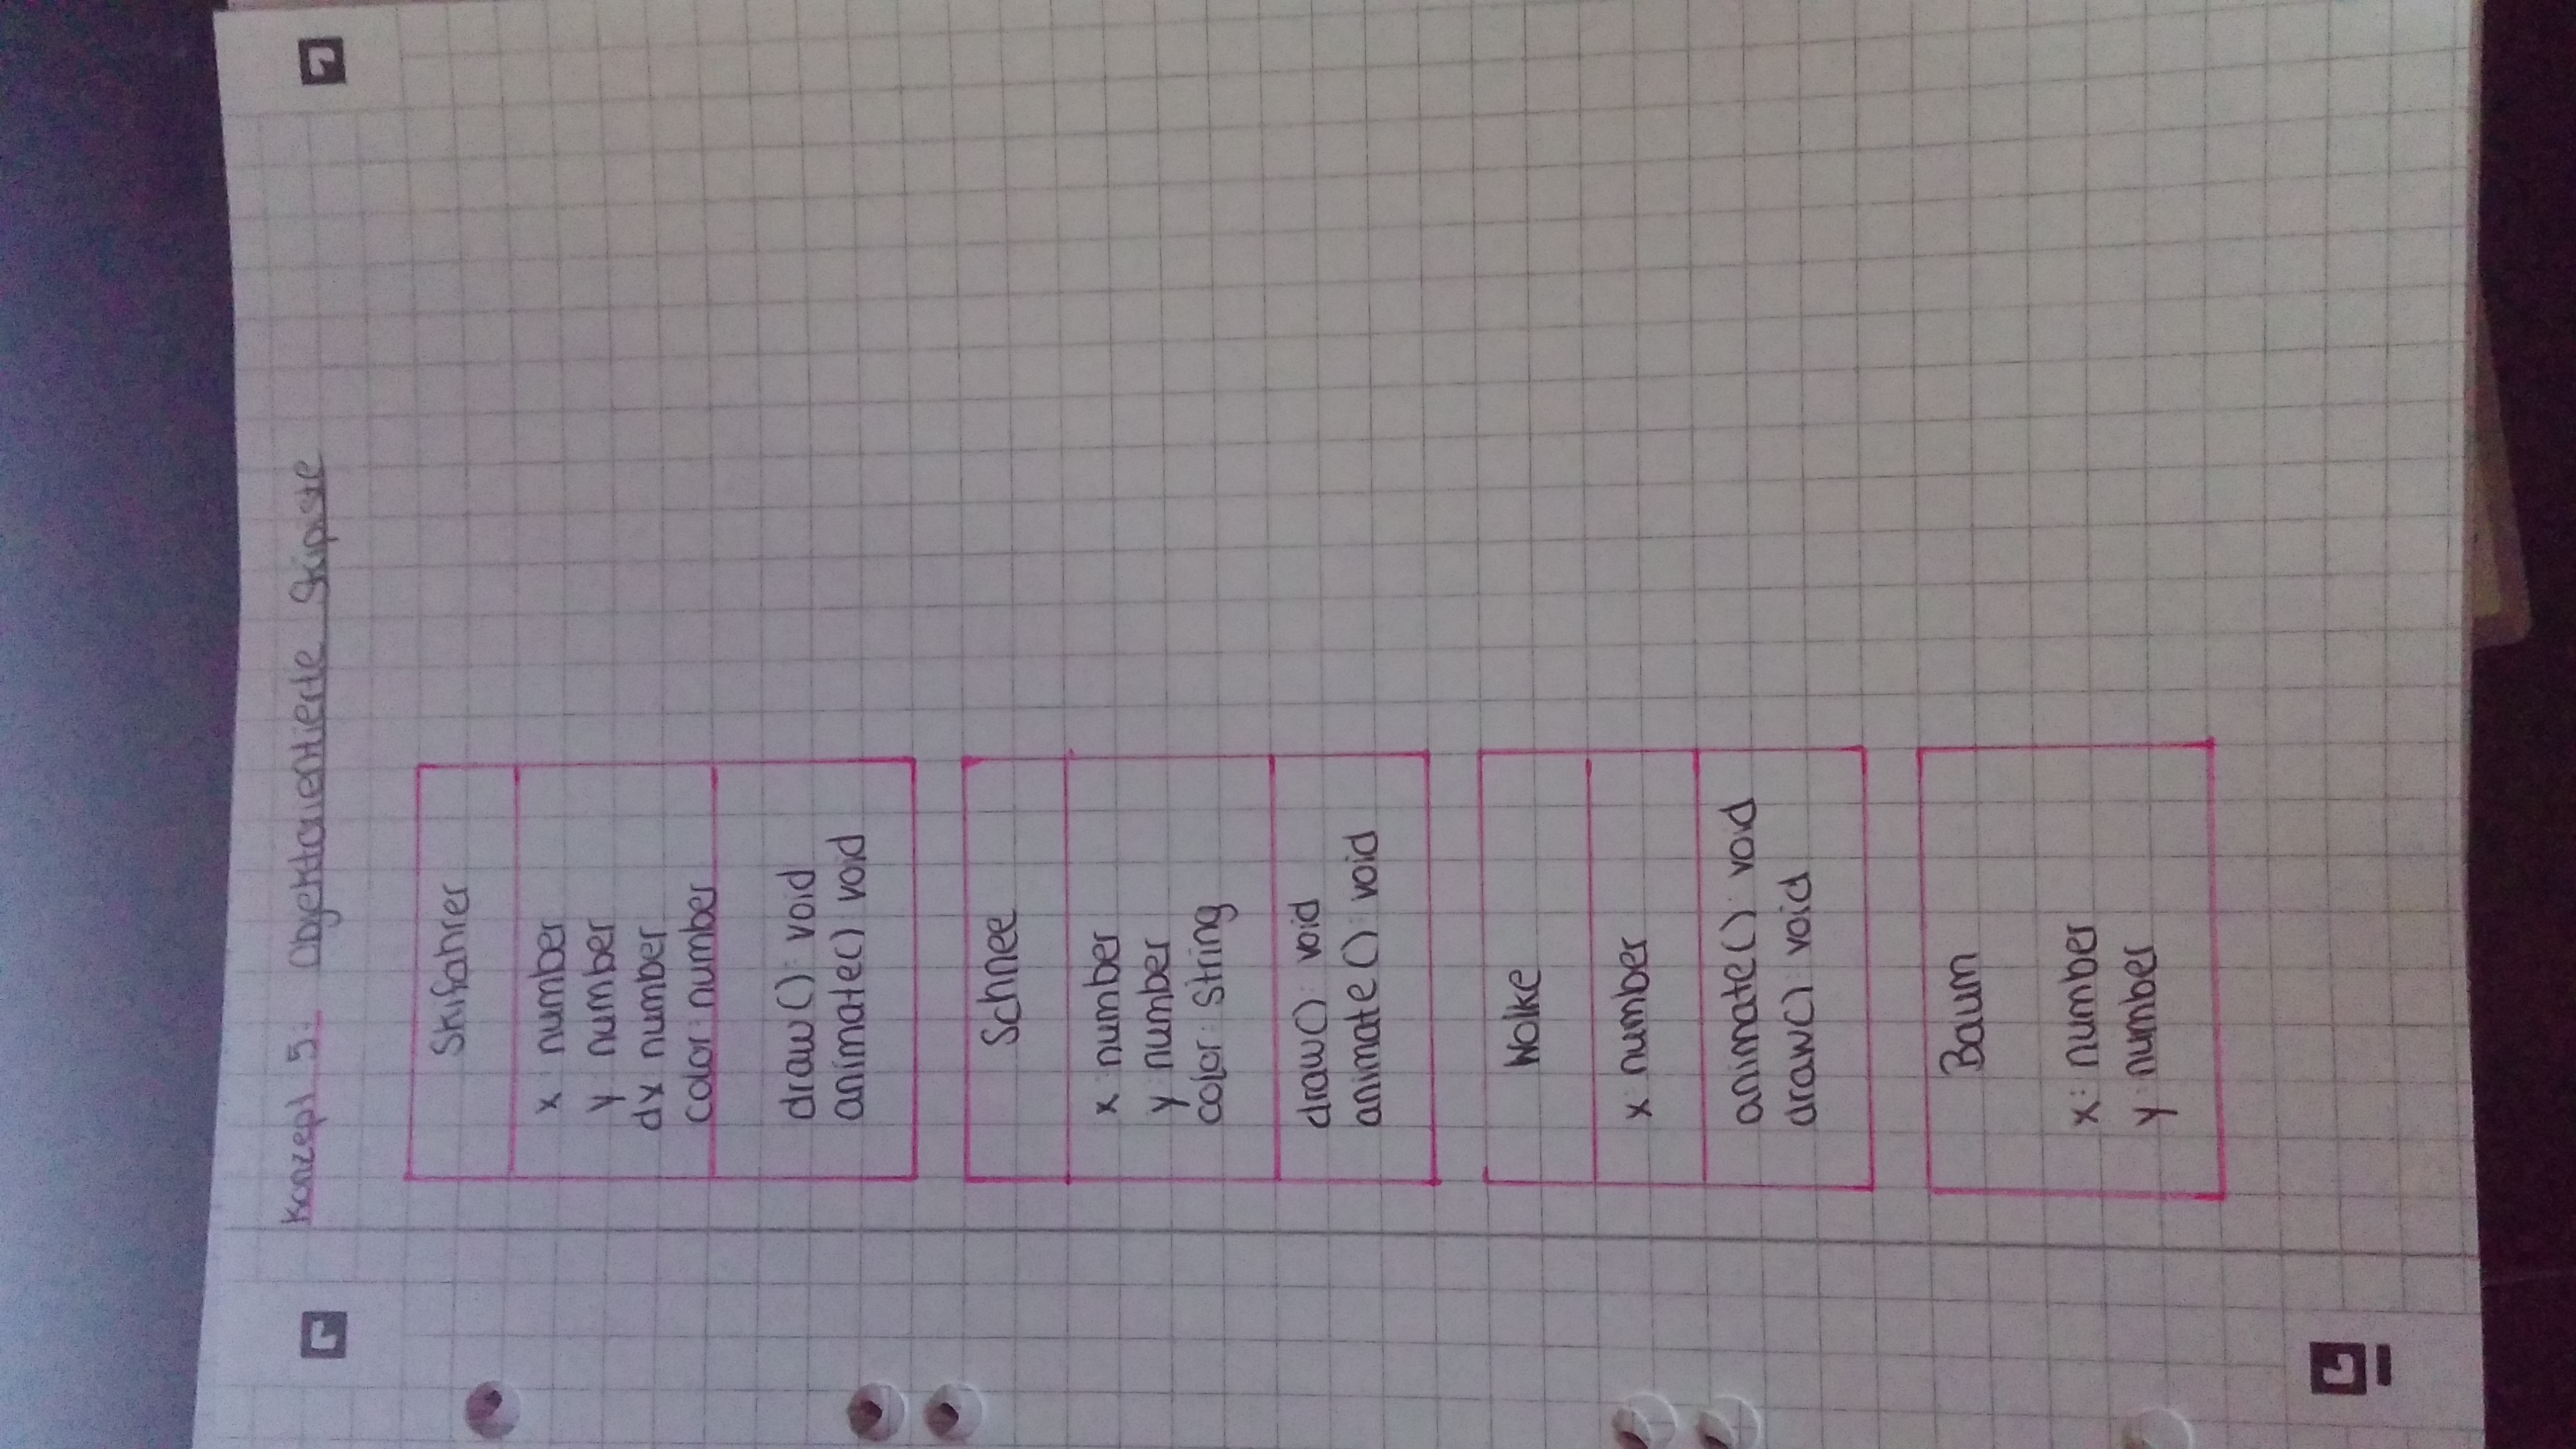 Konzept 5: Objektorientierte Skipiste
Skifahrer
x: number
y: number
dx: number
color: number
draw(): void
animate(): void
Schnee
x: number
y: number
color: string
draw(): void
animate(): void
Wolke
x: number
animate(): void
draw(): void
Baum
x: number
y: number